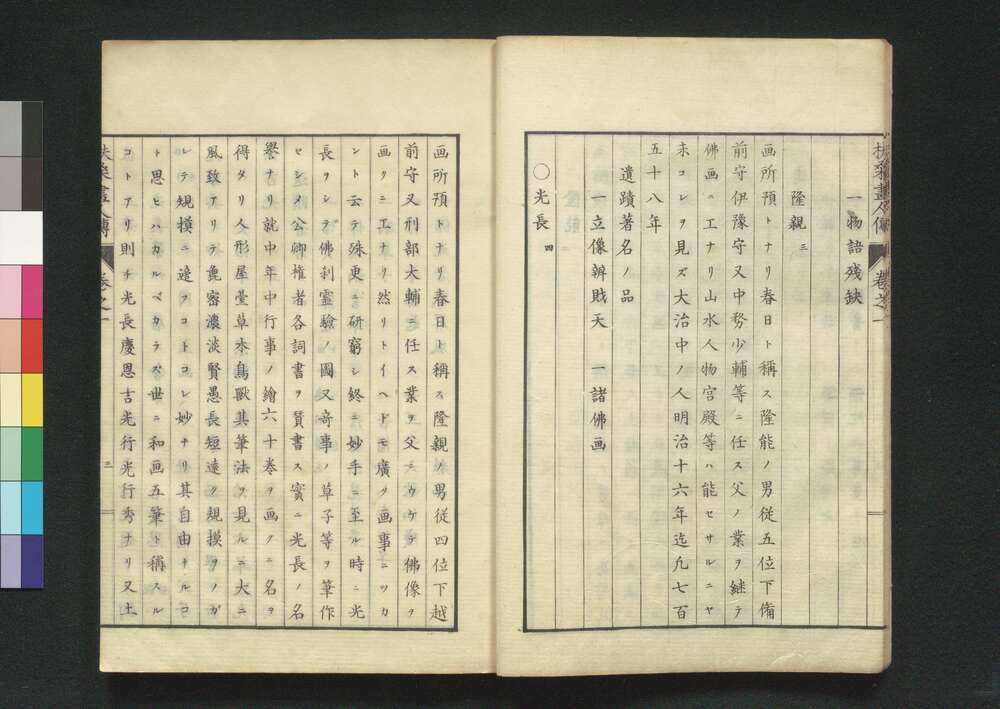 扶桑畫人傳 卷之一
一物語殘缺
隆親 三
画所預トナリ春日ト稱ス隆能ノ男從五位下備
前守伊豫守又中務少輔等ニ任ス父ノ業ヲ継テ
佛画ニ工ナリ山水人物宮殿等ハ能セサルニヤ
未コレヲ見ズ大治中ノ人明治十六年迄凢七百
五十八年
遺蹟著名ノ品
一立像辨財天 一諸佛画
〇光長 四
画所預トナリ春日ト稱ス隆親ノ男從四位下越
前守又刑部大輔ニ任ス業ヲ父ニウケテ佛像ヲ
画クニ工ナリ然リトイヘドモ廣ク画事ニツカ
ント云テ殊更ニ研窮シ終ニ妙手ニ至ル時ニ光
長ヲシテ佛刹靈驗ノ圖又竒事ノ草子等ヲ筆作
セシメ公卿権者各詞書ヲ賛書ス實ニ光長ノ名
譽ナリ就中年中行事ノ繪六十卷ヲ画クニ名ヲ
得タリ人形屋臺草木鳥獸其筆法ヲ見ルニ大ニ
風致アリテ麁密濃淡賢愚長短遠ク規摸ヲノガ
レテ規摸ニ違ヲコトコレ妙ナリ其自由ナルコ
ト思ヒハカルベカラズ世ニ和画五筆ト稱スル
コトアリ則チ光長慶恩吉光行光行秀ナリ又土
扶桑畫人傳 卷之一 三